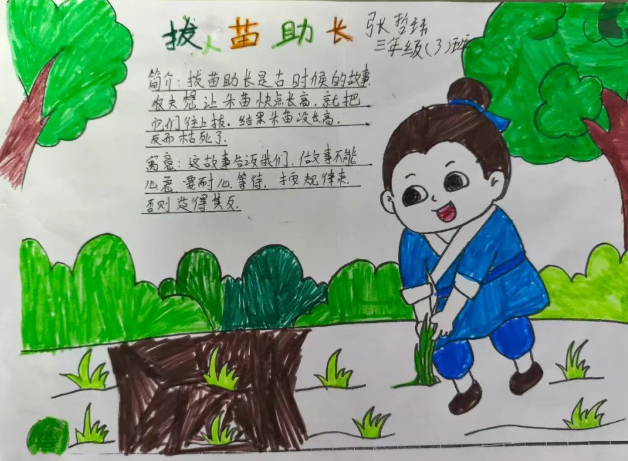 拔苗助长
张哲玮
三年级(3)班
简介:拔苗助长是古时候的故事.
农夫想让禾苗快点长高.就把
它们往上拔.结果禾苗没长高.
反而枯死了.
寓意:这故事告诉我们,做事不能
心急要耐心等待.按规律来.
否则适得其反.